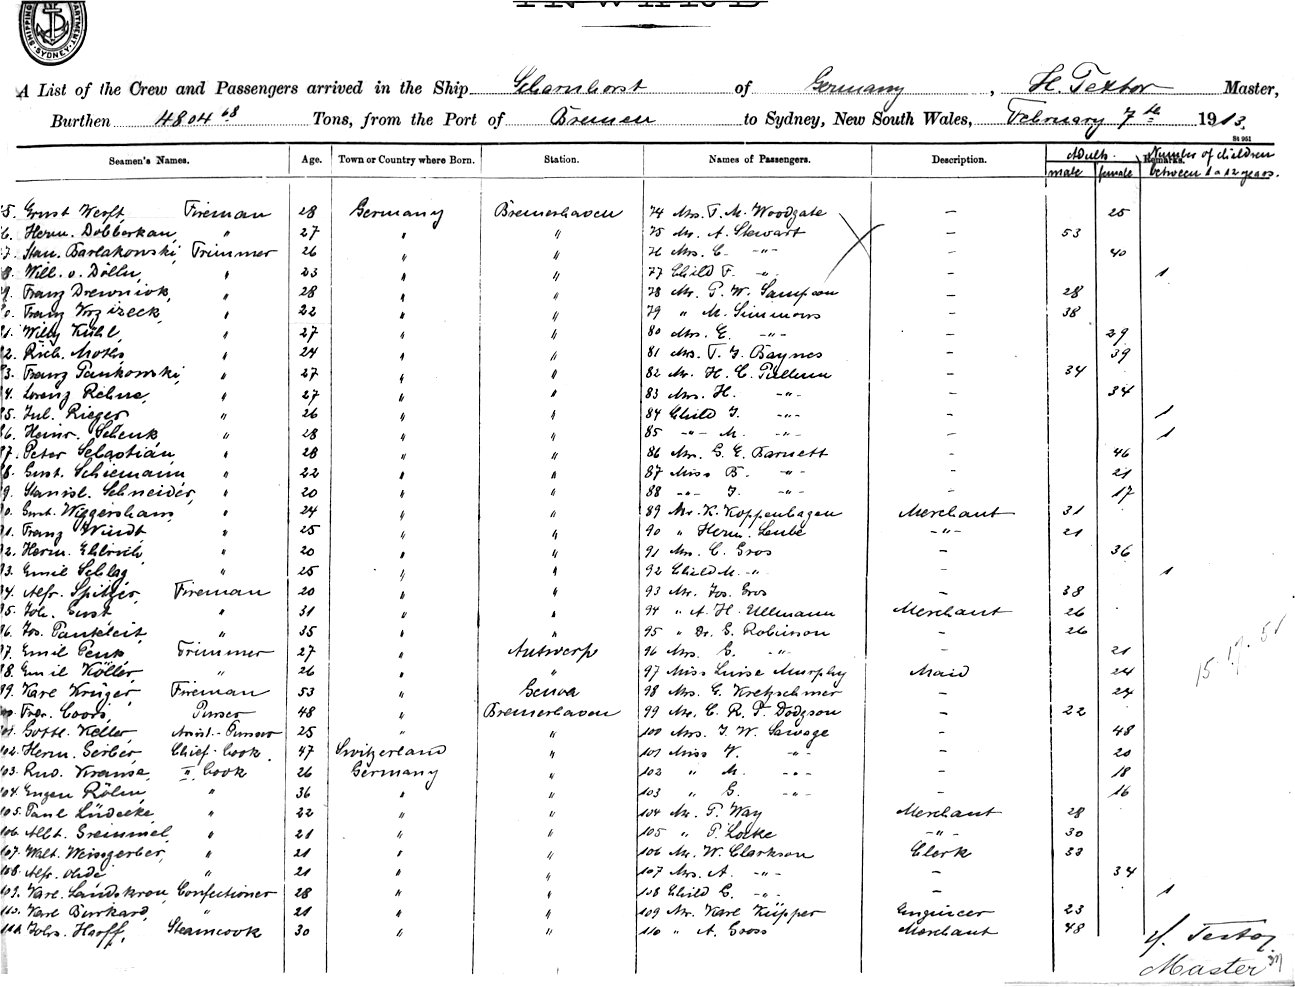 SHIPPING DEPARTMENT, SYDNEY
INWARD
A List of the Crew and Passengers arrived in the Ship Scharnhorst of Germany, H. Textor Master,
Burthen 4804 68 Tons, from the Port of Bremen to Sydney, New South Wales, February 7th 1913.
St 951
Seamen's Names. Age. Town or Country where Born. Station. Names of Passengers. Description. Adults. male female Remarks. Number of children between 1 a 12 years.
5. Ernst Werft, Fireman 28 Germany Bremerhaven 74 Mrs. T. M. Woodgate — 25
6. Herm. Dobberkau, " 27 " " 75 Mr. A. Stewart — 53
7. Stan. Barlakowski, Trimmer 26 " " 76 Mrs. C. -"- — 40
8. Will. v. Döllen, " 23 " " 77 Child F. " — 1
9. Franz Drewniok, " 28 " " 78 Mr. P. W. Sampson — 28
0. Franz Wrzizeck, " 22 " " 79 " M. Simmons — 38
81. Willy Kühl, " 27 " " 80 Mrs. E. -"- — 29
82. Rich. Moths " 24 " " 81 Mrs. T. J. Baynes — 39
83. Franz Pankowski, " 27 " " 82 Mr. H. C. Pullman — 34
84. Lorenz Rehne, " 27 " " 83 Mrs. H. -"- — 34
85. Jul. Rieger " 26 " " 84 Child J. -"- — 1
86. Heinr. Schenk " 28 " " 85 -"- M. -"- — 1
87. Peter Sebastian " 28 " " 86 Mrs. G. E. Barnett — 46
88. Gust. Schiemann " 22 " " 87 Miss B. -"- — 21
89. Stanisl. Schneider, " 20 " " 88 -"- J. -"- — 17
90. Gust. Wiggershaus, " 24 " " 89 Mr. K. Koppenhagen Merchant 31
91. Franz Windt " 25 " " 90 " Herm. Leube -"- 21
92. Herm. Ehlrich " 20 " " 91 Mrs. C. Gros — 36
93. Emil Schlag " 25 " " 92 Child M. -"- 1
94. Alfr. Spitzer, Fireman 20 " " 93 Mr. Jos. Gros — 38
95. Joh. Ernst " 31 " " 94 " A. H. Ullmann Merchant 26
96. Jos. Pankleit " 35 " " 95 " Dr. G. Robinson — 26
97. Emil Penk Trimmer 27 " Antwerp 96 Mrs. C. -"- — 21
98. Emil Köller, " 26 " " 97 Miss Luise Murphy Maid 24
99. Karl Krüger, Fireman 53 " Genua 98 Mrs. G. Kretzschmer — 24
100. Fredr. Coors, Purser 48 " Bremerhaven 99 Mr. C. R. P. Dodgson — 22
101. Gottl. Keller, Assist.-Purser 25 " " 100 Mrs. J. W. Savage — 48
102. Herm. Gerber, Chief-Cook, 47 Switzerland " 101 Miss V. -"- — 20
103. Rud. Krause, II. Cook 26 Germany " 102 " M. -"- — 18
104. Eugen Röhm, " 36 " " 103 " G. -"- — 16
105. Paul Lüdecke, " 22 " " 104 Mr. P. Way Merchant 28
106. Albt. Greimmel, " 21 " " 105 " P. Locke -"- 30
107. Walt. Weingerber, " 21 " " 106 Mr. W. Clarkson Clerk 33
108. Alfr. Uhde " 21 " " 107 Mrs. A. -"- — 34
109. Karl Landskron, Confectioner 28 " " 108 Child C. -"- — 1
110. Karl Burkard, " 21 " " 109 Mr. Karl Küpper Engineer 23
111. Johs. Harff, Steamcook 30 " " 110 " A. Gross Merchant 48
15.17.51
H. Textor.
Master